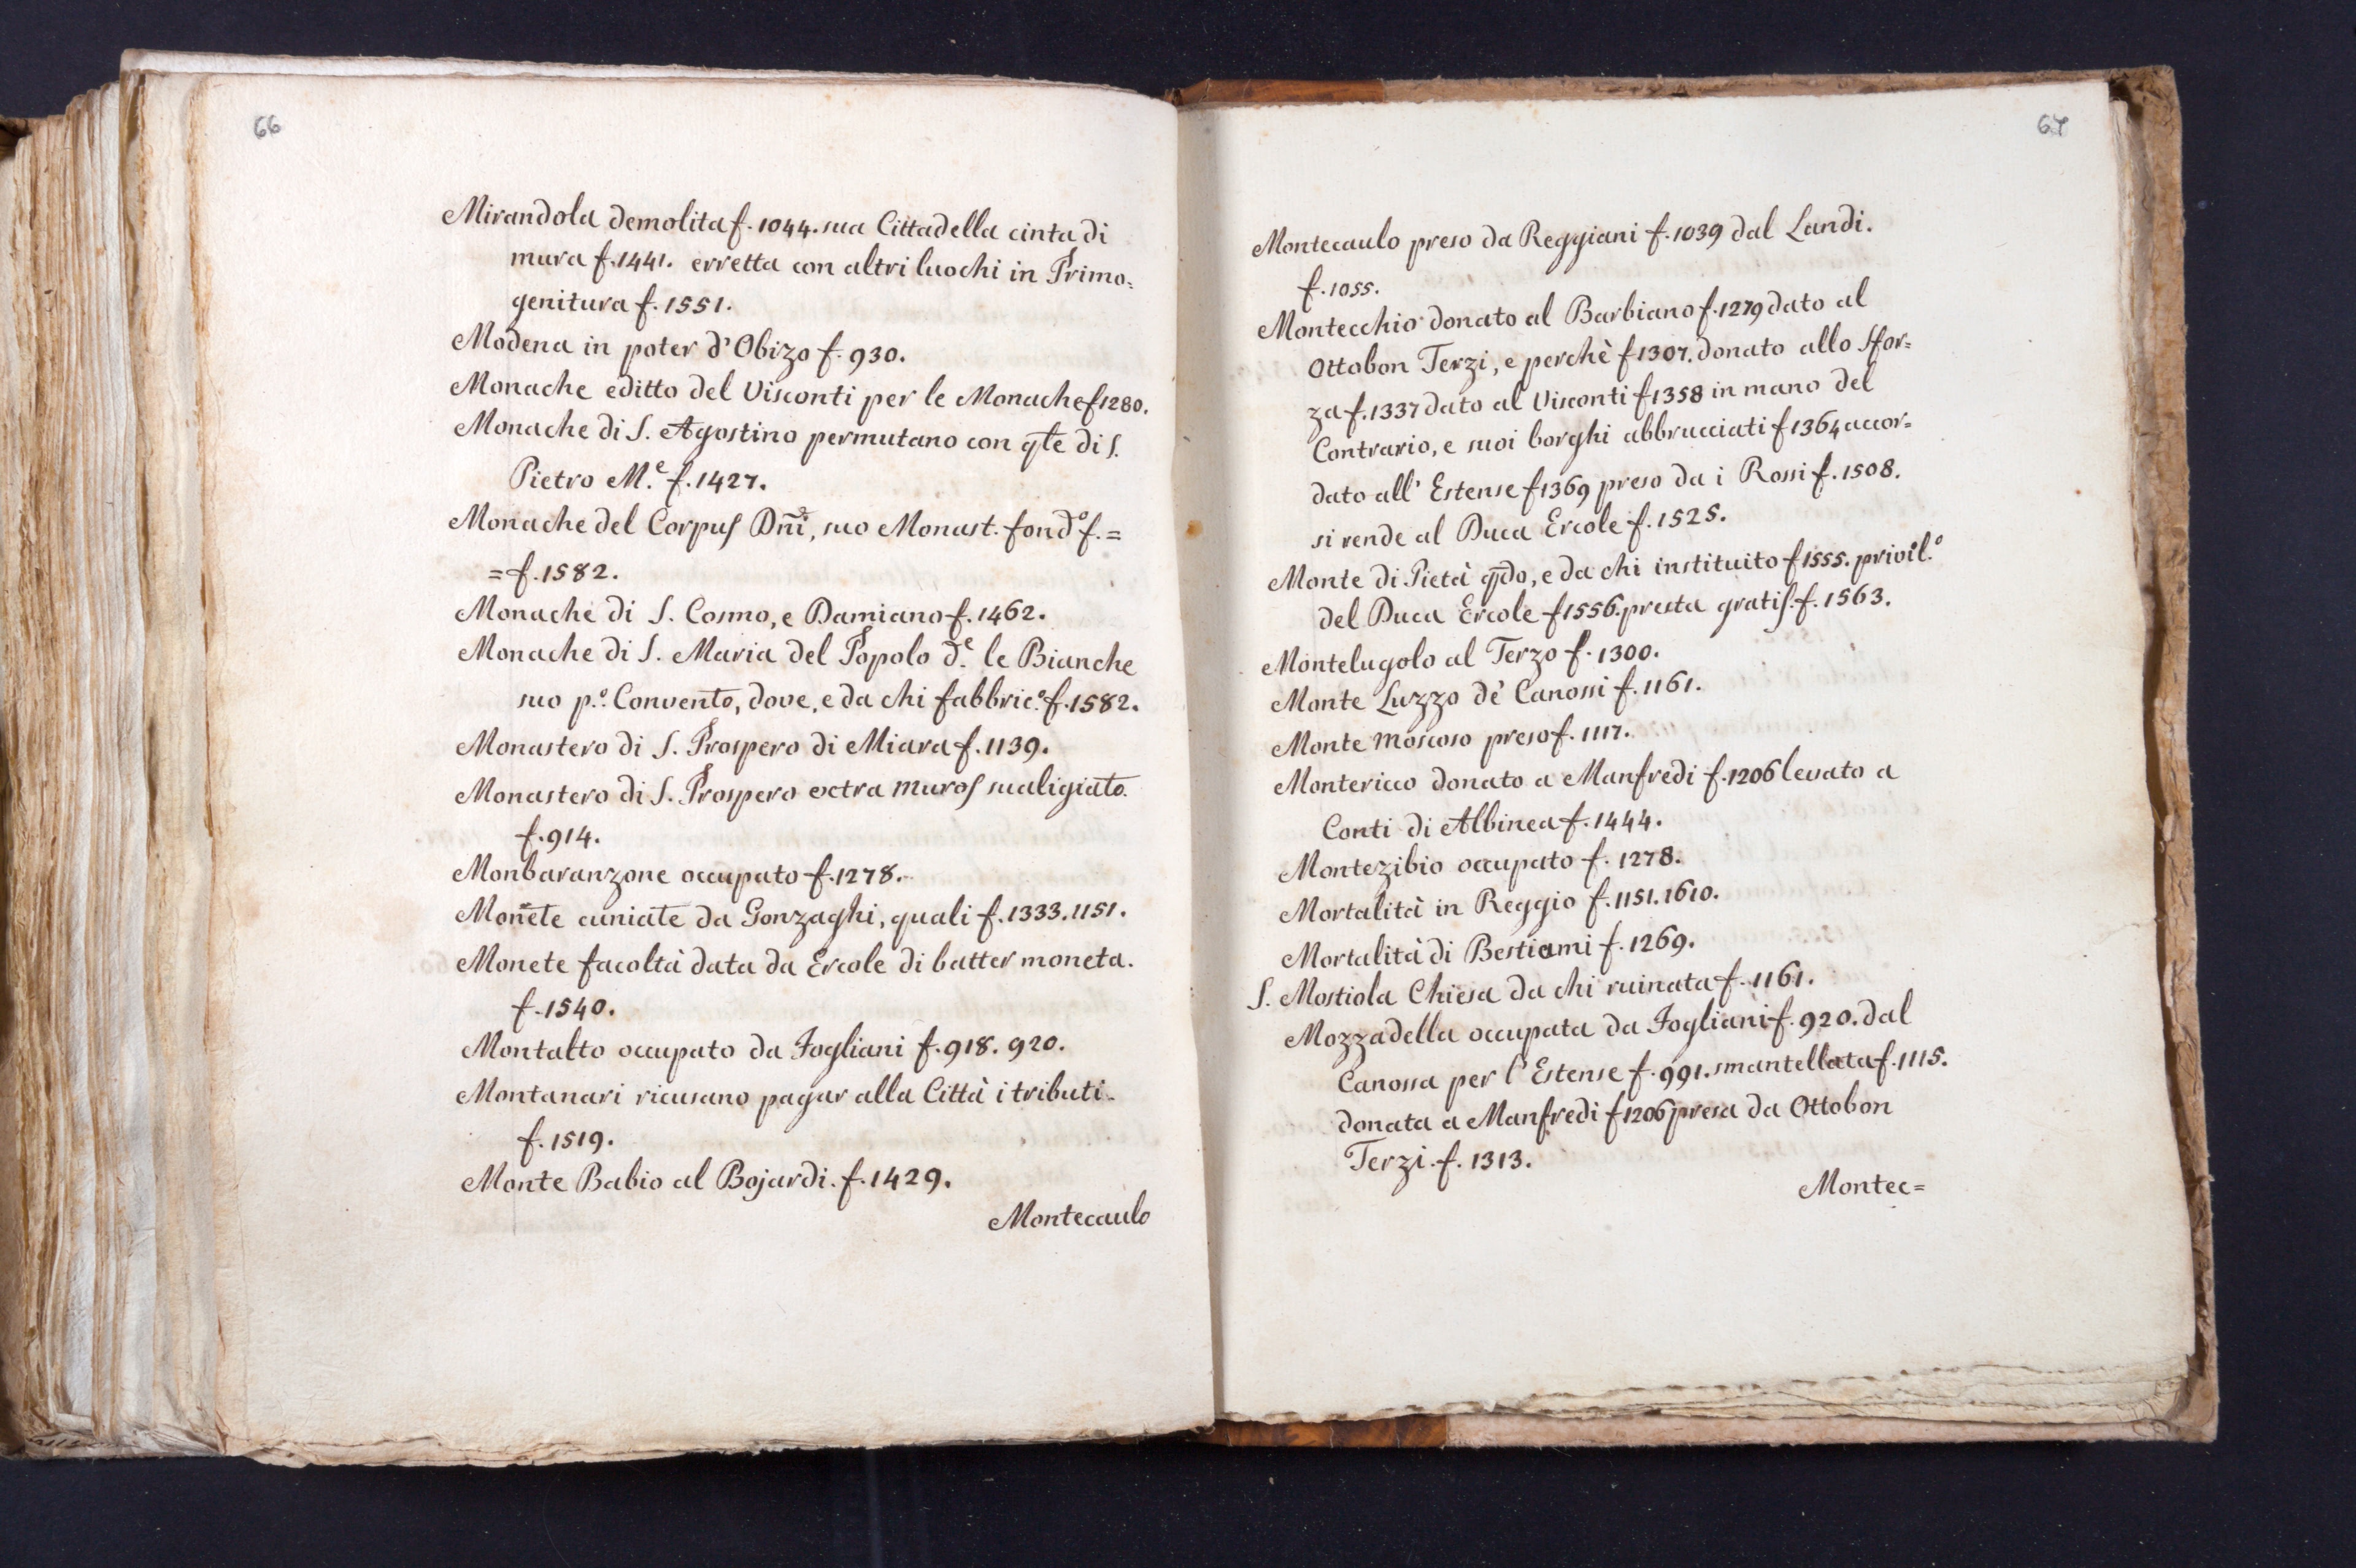 66
Mirandola demolita f. 1044. sua Cittadella cinta di
mura f. 1441. erretta con altri luochi in Primo=
genitura f. 1551.
Modena in poter d'Obizo f. 930.
Monache editto del Visconti per le Monache f 1280.
Monache di S. Agostino permutano con qte di S.
Pietro M.e f. 1427.
Monache del Corpus Dni, suo Monast. fond.o f. =
= f. 1582.
Monache di S. Cosmo, e Damiano f. 1462.
Monache di S. Maria del Popolo d.e le Bianche
suo p.o Convento, dove, e da chi fabbric.o f. 1582.
Monastero di S. Prospero di Miara f. 1139.
Monastero di S. Prospero extra muros sualigiato.
f. 914.
Monbaranzone occupato f. 1278.
Monete cuniate da Gonzaghi, quali f. 1333. 1151.
Monete facoltà data da Ercole di batter moneta.
f. 1540.
Montalto occupato da Fogliani f. 918. 920.
Montanari ricusano pagar alla Città i tributi.
f. 1519.
Monte Babio al Bojardi. f. 1429.
Montecaulo
67
Montecaulo preso da Reggiani f. 1039 dal Landi.
f. 1055.
Montecchio donato al Barbiano f. 1279 dato al
Ottobon Terzi, e perchè f 1307. donato allo Sfor=
za f. 1337 dato al Visconti f 1358 in mano del
Contrario, e suoi borghi abbrucciati f 1364 accor=
dato all' Estense f 1369 preso da i Rossi f. 1508.
si rende al Duca Ercole f. 1525.
Monte di Pietà qdo, e da chi instituito f 1555. privil.o
del Duca Ercole f 1556. presta gratis. f. 1563.
Montelugolo al Terzo f. 1300.
Monte Luzzo de' Canossi f. 1161.
Monte Moscoso preso f. 1117.
Montericco donato a Manfredi f. 1206 levato a
Conti di Albinea f. 1444.
Montezibio occupato f. 1278.
Mortalità in Reggio f. 1151. 1610.
Mortalità di Bestiami f. 1269.
S. Mostiola Chiesa da chi ruinata f. 1161.
Mozzadella occupata da Fogliani f. 920. dal
Canossa per l'Estense f. 991. smantellata f. 1115.
donata a Manfredi f 1206 presa da Ottobon
Terzi. f. 1313.
Montec=